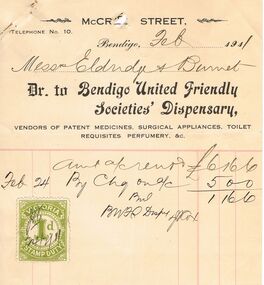 McCR STREET,
TELEPHONE No. 10.
Bendigo, Feb 1911
Messrs Eldridge & Burnet
Dr. to Bendigo United Friendly
Societies' Dispensary,
VENDORS OF PATENT MEDICINES, SURGICAL APPLIANCES, TOILET
REQUISITES PERFUMERY, &c.
£6 16 6
Feb 24 By Chq on a/c 5 0 0
Bal 1 16 6
VICTORIA
1d
STAMP DUTY